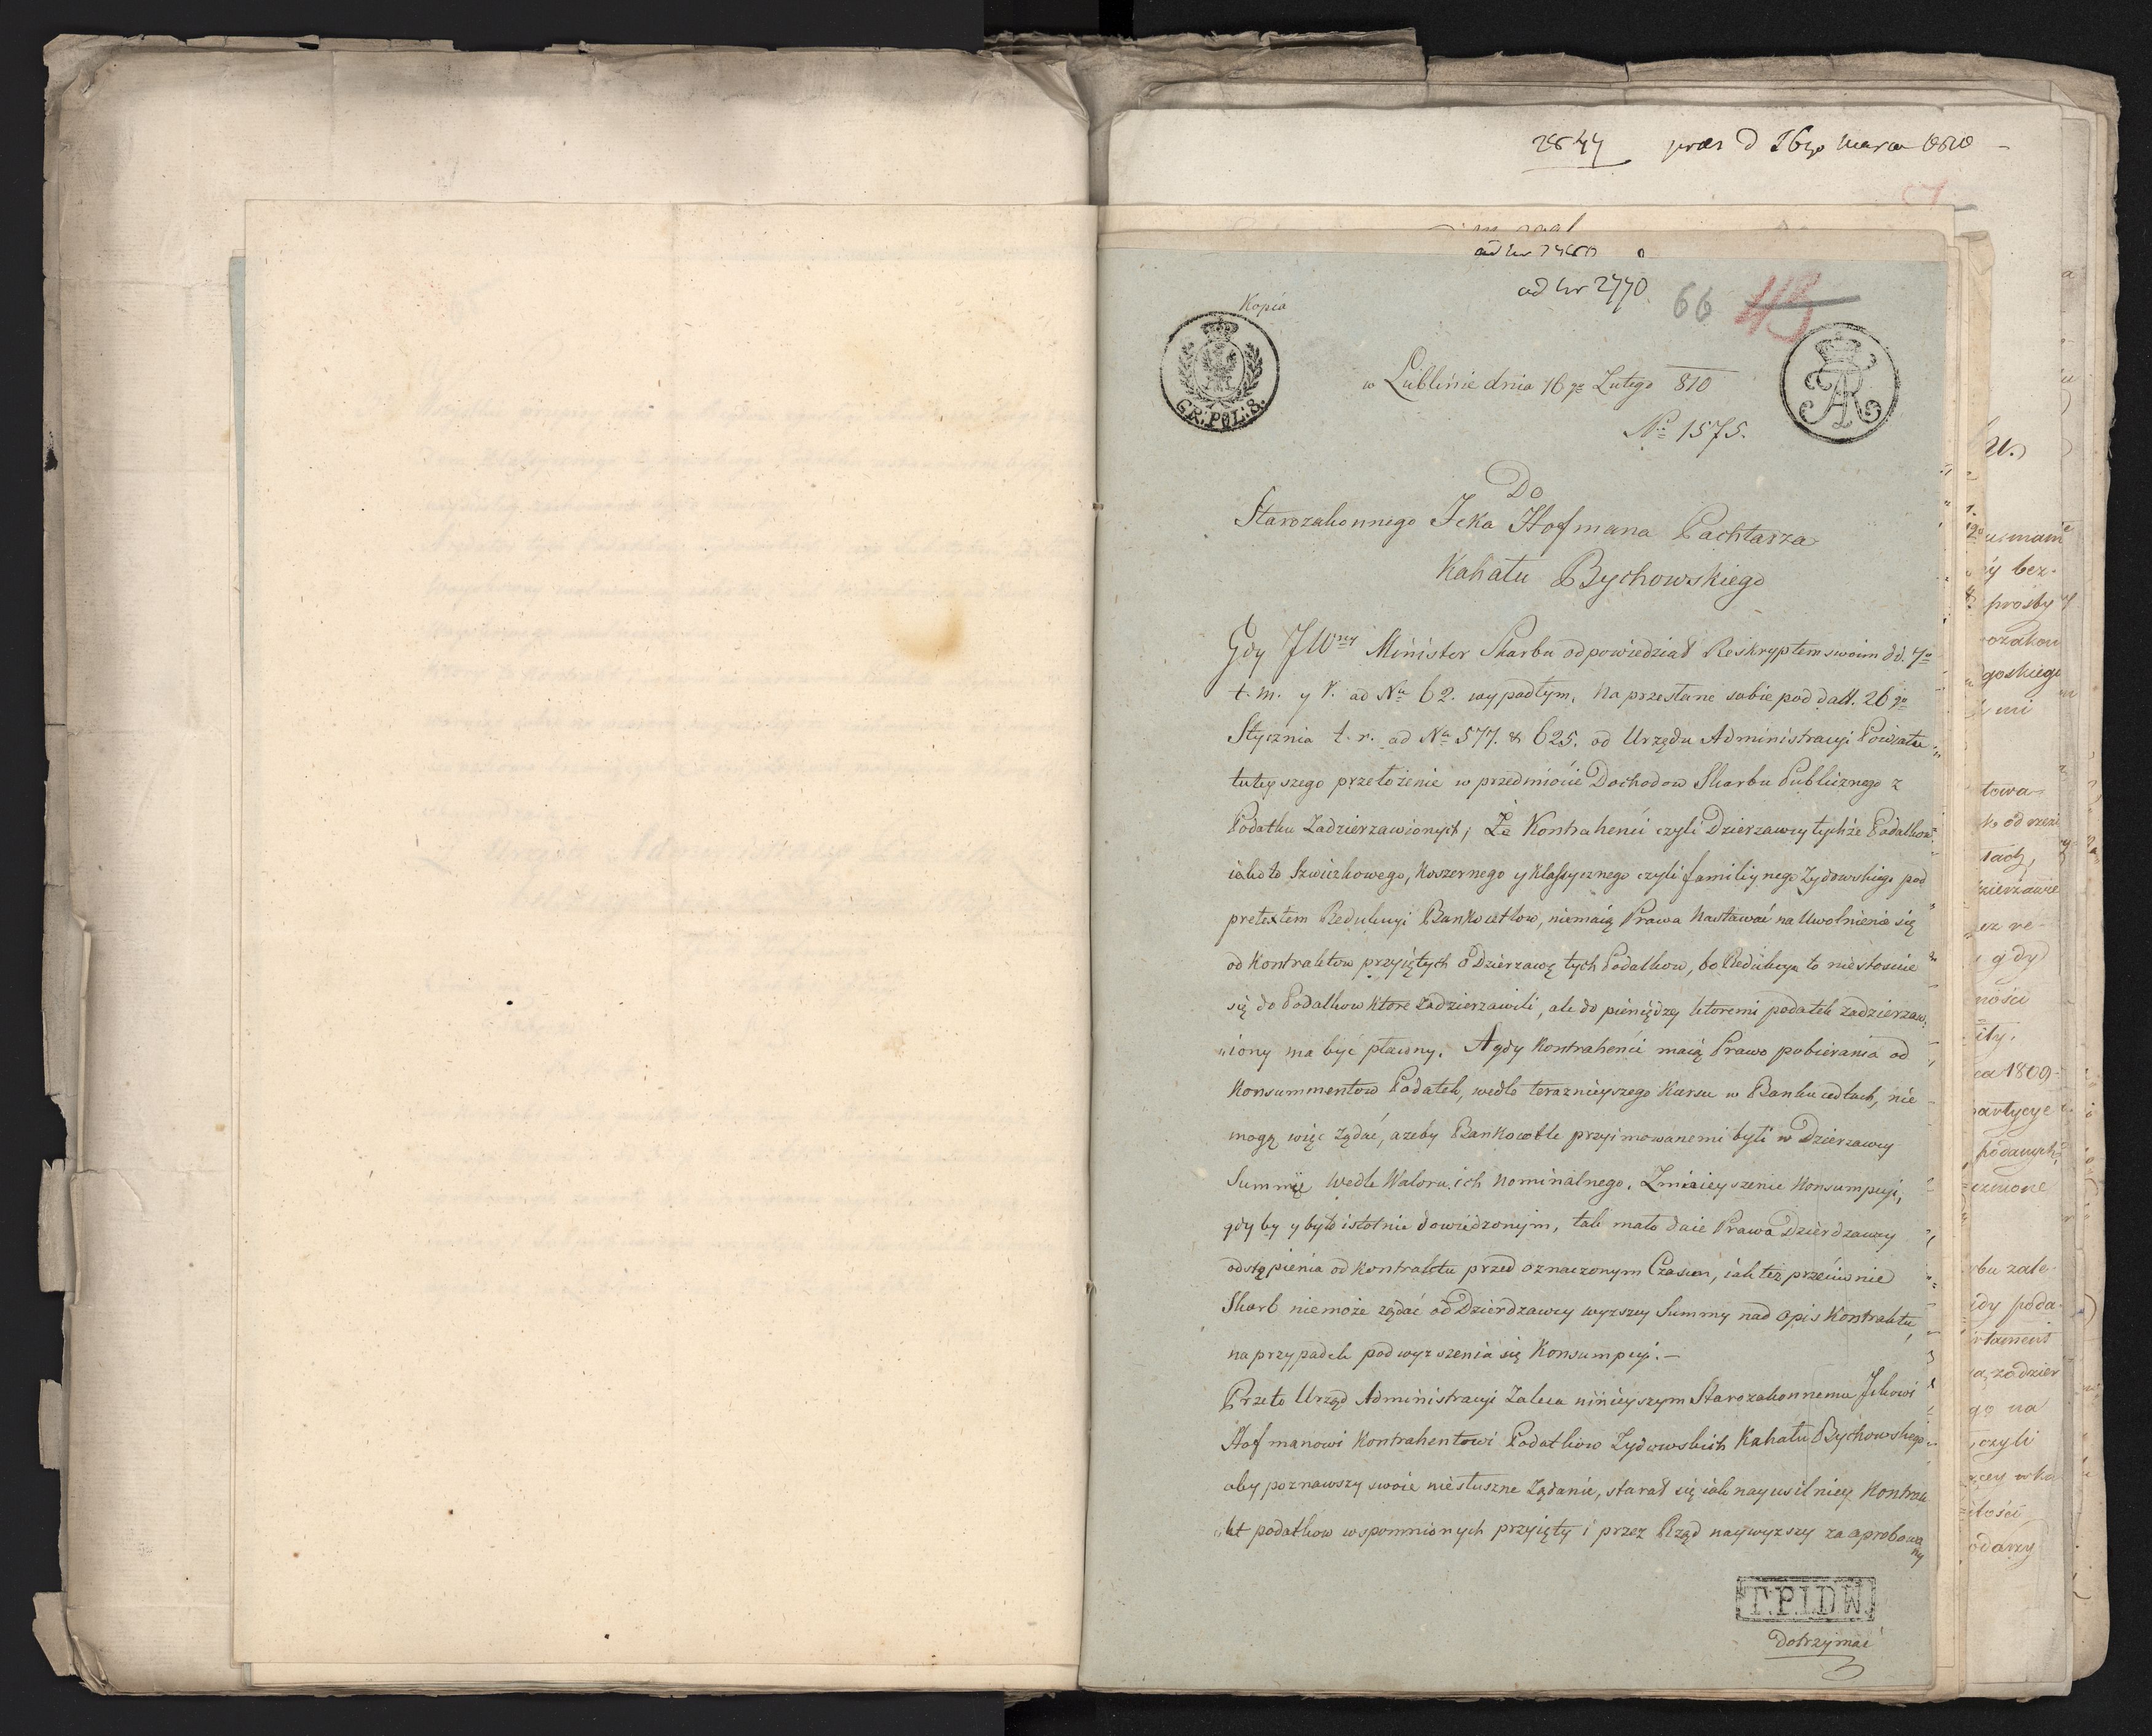 2844 praes d 16go Marca 1810
ad Nr 2770
66 113
Kopia
GR: POL: 8.
w Lublinie dnia 16go Lutego 810
No 1575.
Do
Starozakonnego Icka Hofmana Pachtarza
Kahału Bychowskiego
Gdy JWny Minister Skarbu odpowiedział Reskryptem swoim dd. 7o
t. m. y r. ad Nu 62. wypadłym, na przesłane sobie pod datt. 26go
Stycznia t. r. ad Nu 577. & 625. od Urzędu Administracyi Powiatu
tuteyszego przełożenie w przedmiocie Dochodow Skarbu Publicznego z
Podatku Zadzierzawionych; Że Kontrahenci czyli Dzierzawcy tychże Podatkow
iako to Szwieczkowego, Koszernego y Klassycznego czyli familiynego Zydowskiego pod
pretextem Redukcyi Bankocetlow, niemaią Prawa Nastawać na Uwolnienie się
od Kontraktow przyiętych o Dzierzawę tych Podatkow, bo Redukcya to niestosuie
się do Podatkow które Zadzierzawili, ale do pieniędzy ktoremi podatek zadzierzaw:
niony ma być płacony. A gdy Kontrahenci maią Prawo pobierania od
Konsummentow Podatek, wedle teraznieyszego Kursu w Bankocedlach, nie
mogą więc Żądać, azeby Bankocetle przyimowanemi byli w Dzierzawcy
Summie wedle Waloru ich Nominalnego. Zmnieyszenie Konsumpcyi,
gdy by y było istotnie dowiedzonym, tak mało daie Prawa Dzierdzawcy
odstąpienia od Kontraktu przed oznaczonym Czasem, iak tez przeciwnie
Skarb niemoże żądać od Dzierdzawcy wyzszey Summy nad opis Kontraktu,
na przypadek podwyzszenia się Konsumpcyi. —
Przeto Urząd Administracyi Zaleca ninieyszym Starozakonnemu Ickowi
Hofmanowi Kontrahentowi Podatkow Zydowskich Kahału Bychowskiego
aby poznawszy swoie niesłuszne Ządanie, starał się iak nayusilniey Kontrak
"kt podatkow wspomnionych przyięty i przez Rząd naywyzszy zaaprobowa
ny
T.P.I.D.W.
dotrzymać